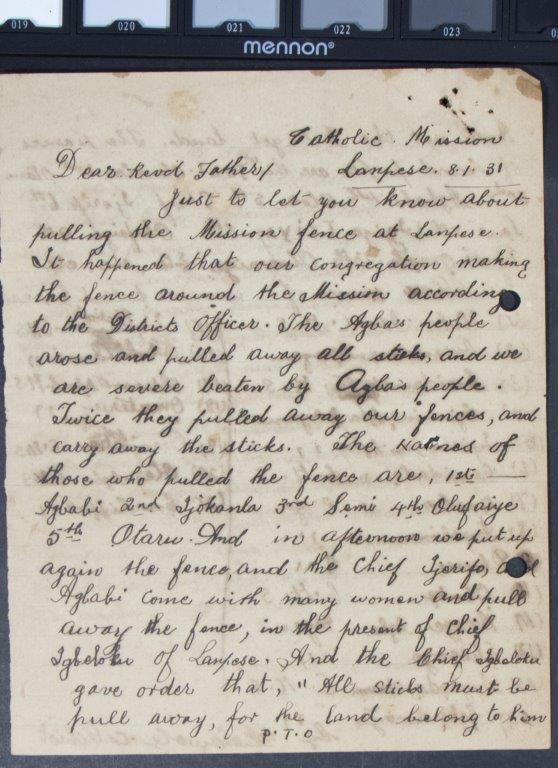 019 020 021 022 023
mennon®
Catholic. Mission
Dear Revd Father/ Lanpese. 8.1.31
Just to let you know about
pulling the Mission fence at Lanpese.
It happened that our congregation making
the fence around the Mission according
to the Districts Officer. The Agba's people
arose and pulled away all sticks, and we
are severe beaten by Agba's people.
Twice they pulled away our fences, and
carry away the sticks. The names of
those who pulled the fence are, 1st —
Agbabi 2nd Ijokanla 3rd Semi 4th Olufaiye
5th Otaru. And in afternoon we put up
again the fence, and the Chief Ijerifo, and
Agbabi come with many women and pull
away the fence, in the present of Chief
Igbeloku of Lanpese. And the Chief Igbeloku
gave order that, "All sticks must be
pull away, for the land belong to him
P.T.O